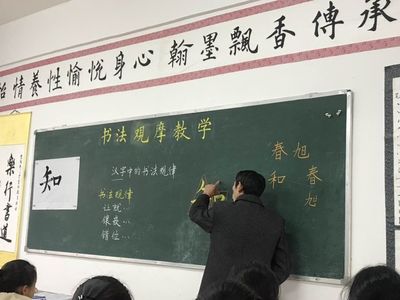 情養性愉悦身心翰墨飄香傳承
書法观摩教学
汉字中的书法规律
书法规律
让就…
错位…
知
知
春旭
和春
旭
樂行書道